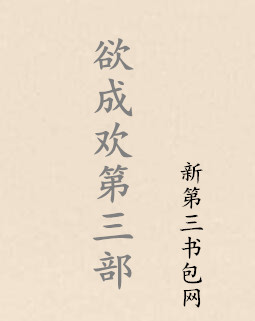 欲成欢第三部
新第三书包网